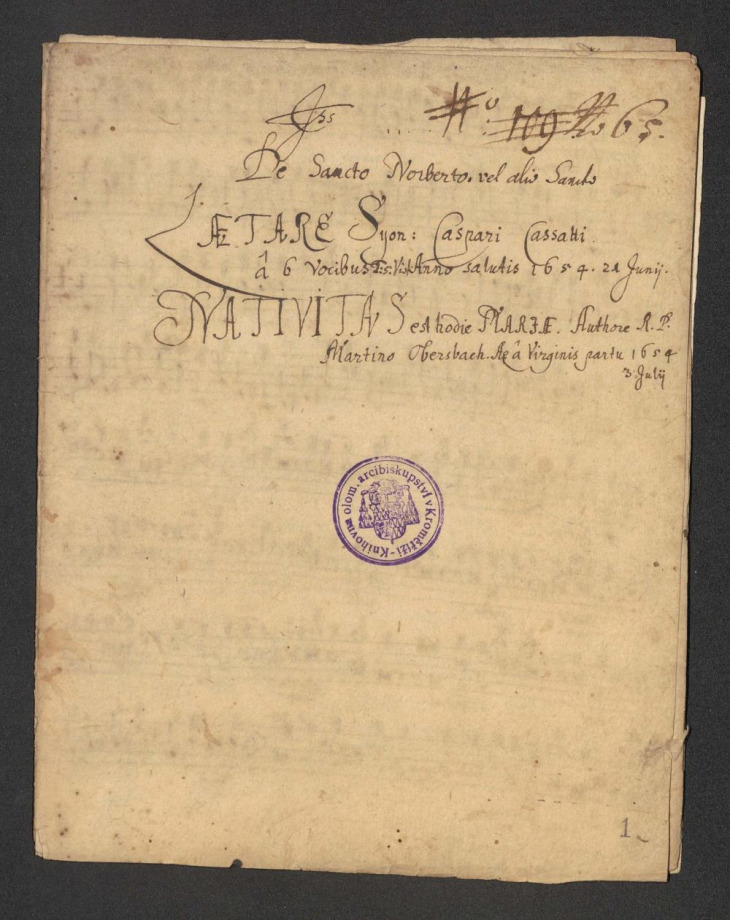 Jhs Nº 109 No 65.
De Sancto Norberto. vel alio Sancto
LÆTARE Syon: Caspari Cassatti.
â 6 Vocibus Anno salutis 1654. 21 Junij.
NATIVITAS est hodie MARIÆ. Authore R. P.
Martino Obersbach. â Virginis partu 1654
3 Julij
Knihovna olom. arcibiskupství v Kroměříži -
1